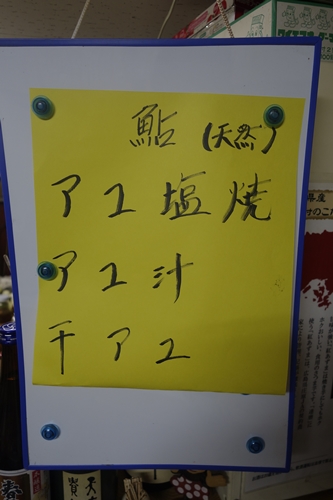 鮎 (天然)
アユ塩焼
アユ汁
干アユ